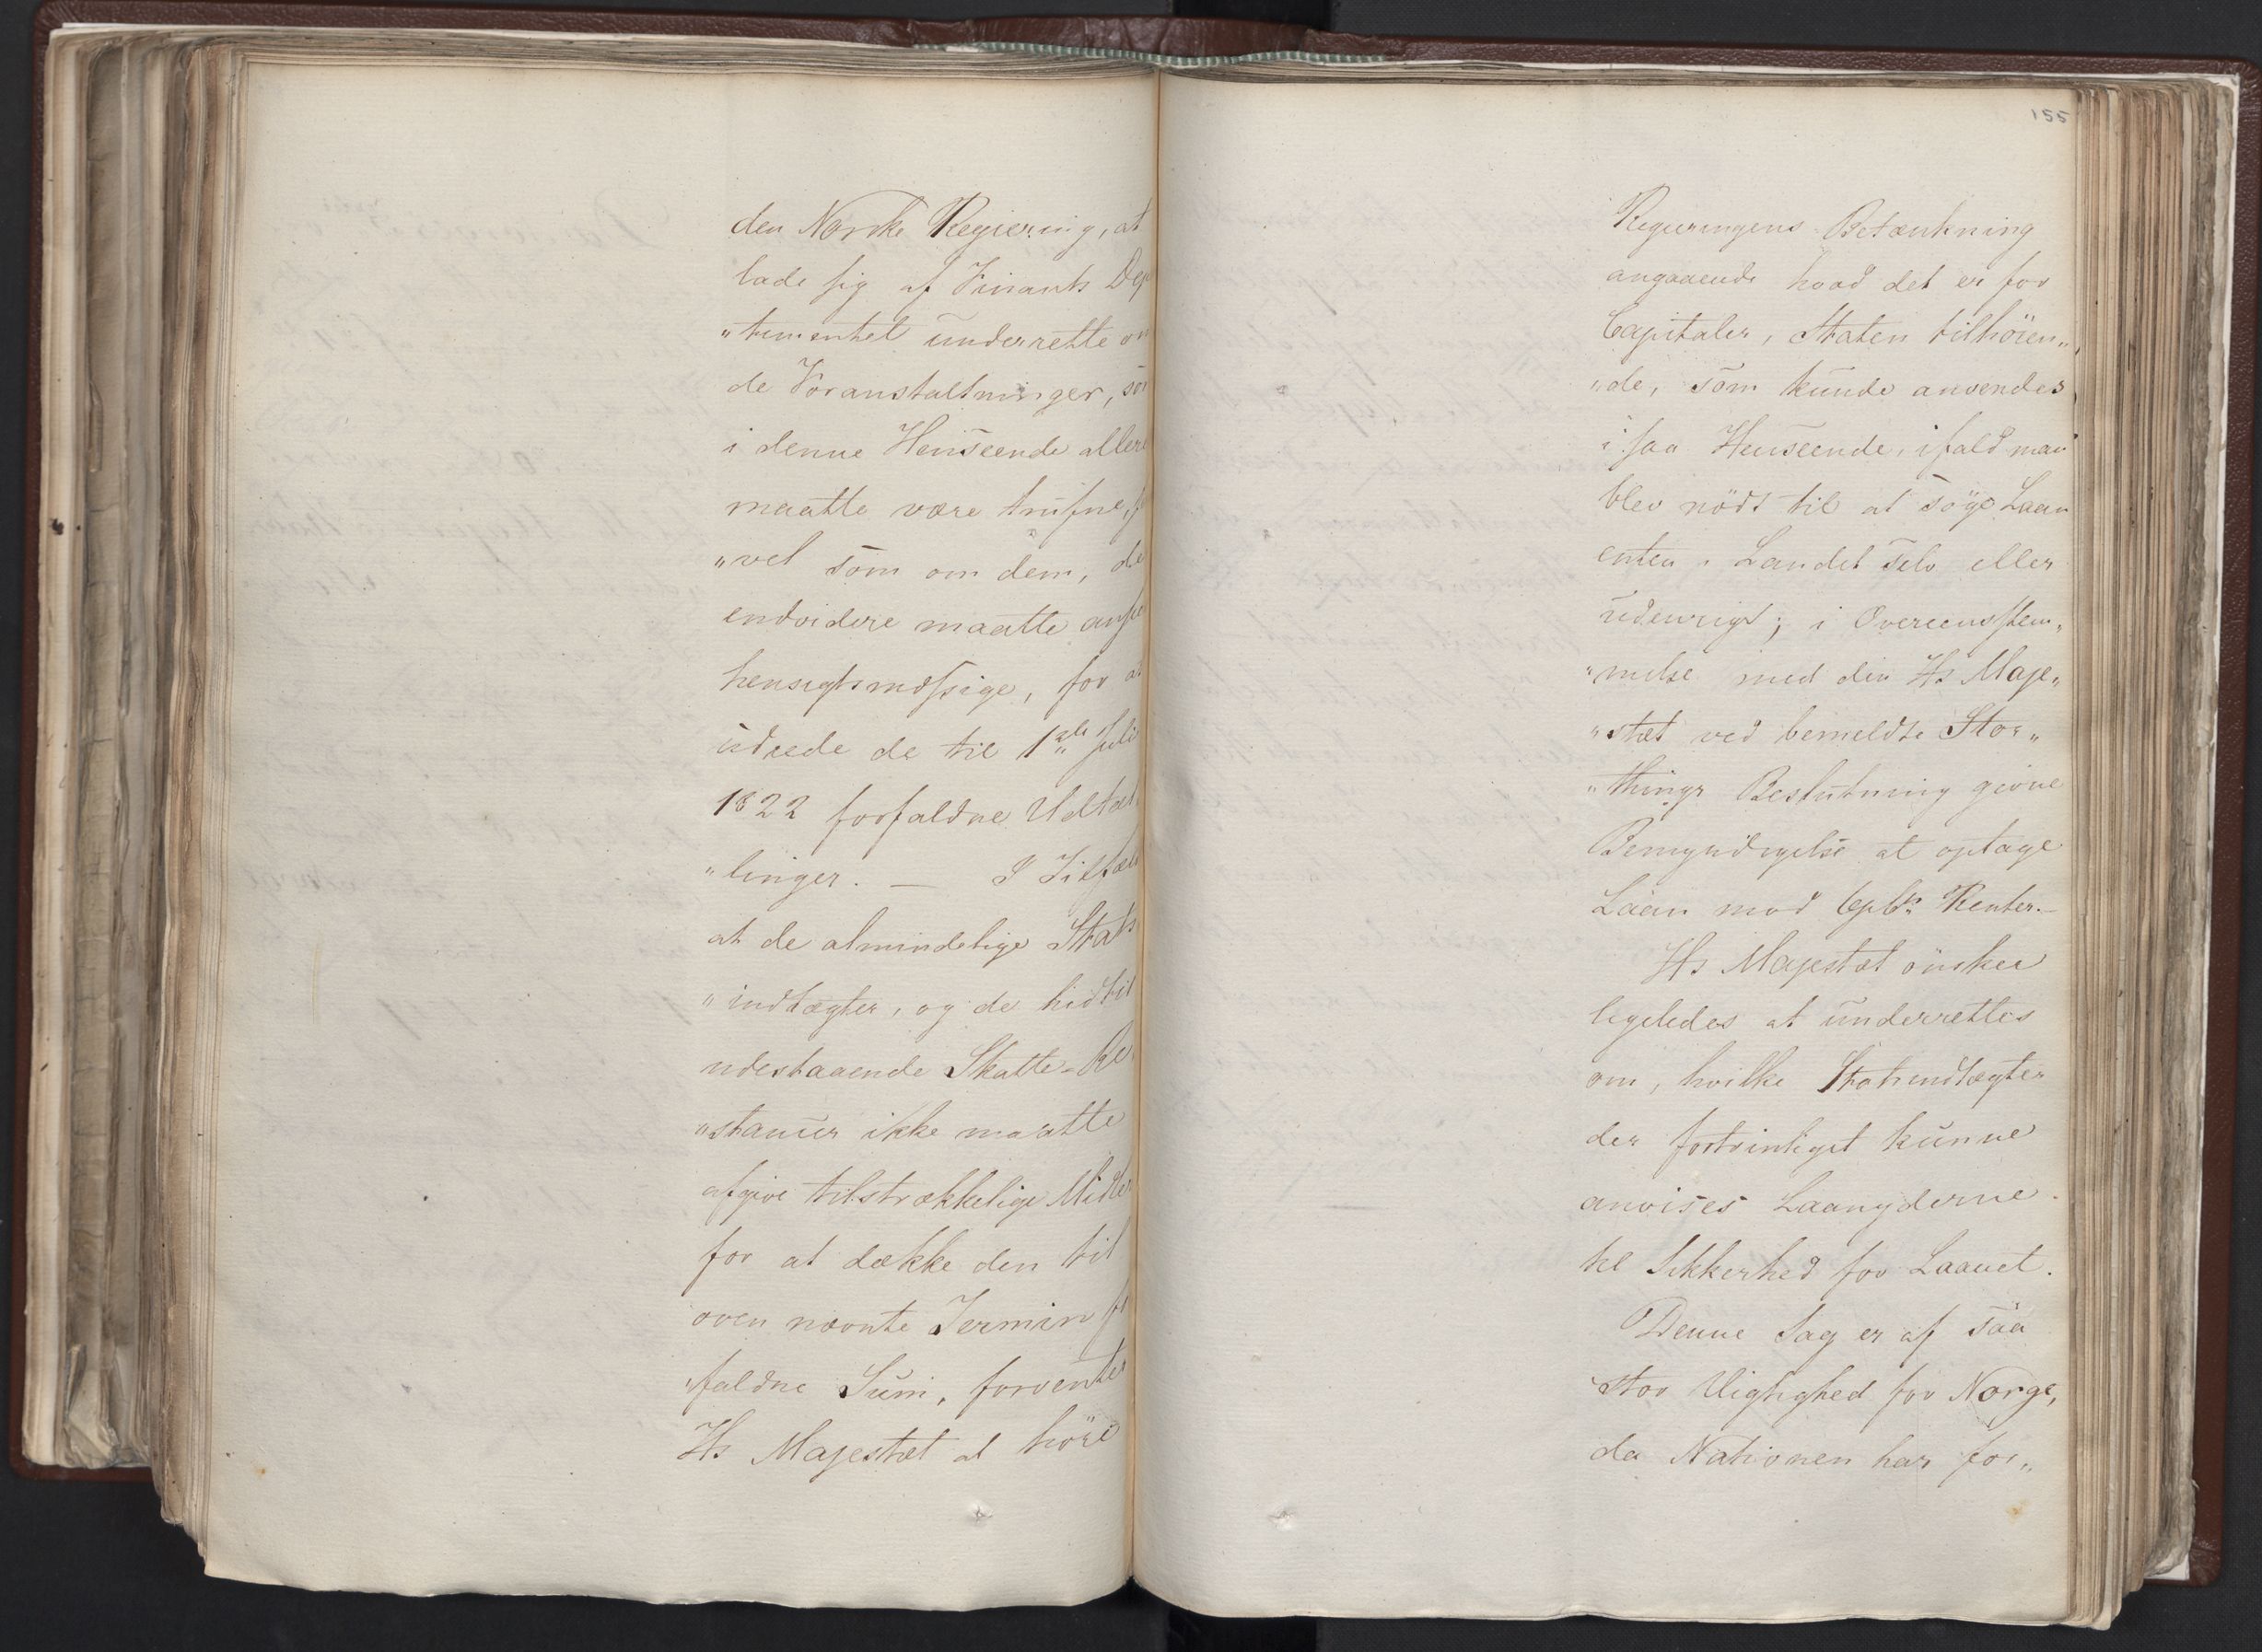 den Norske Regjering, at
lade sig af Finants Dep
"tementet underrette om
de Foranstaltninger, som
i denne Henseende allere
maatte være trufne, s
"vel som om dem, de
endvidere maatte ansee
hensigtsmæssige, for at
udrede de til 1ste Juli
1822 forfaldne Udtæl
"linger. — I Tilfæl
at de almindelige Stats
"indtægter, og de hidtil
udestaaende Skatte-Re
"stancer ikke maatte
afgive tilstrækkelige Midler
for at dække den til
oven nævnte Termin fo
"faldne Sum, forventer
Hs Majestæt at höre
155
Regjeringens Betænkning
angaaende hvad det er for
Capitaler, Staten tilhören„
"de, som kunde anvendes
i saa Henseende, ifald man
blev nödt til at söge Laan
enten i Landet selv eller
udenrigs; i Overeensstem„
"melse med den Hs Maje„
"stæt ved bemeldte Stor„
"things Beslutning givne
Bemyndigelse at optage
Laan mod 6pCt Renter.—
Hs Majestæt önsker
ligeledes at underrettes
om, hvilke Statsindtægter
der fortrinligst kunne
anvises Laangiverne
til Sikkerhed for Laanet.
Denne Sag er af saa
stor Vigtighed for Norge,
da Nationen har for„